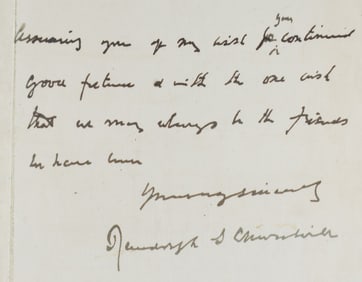 Assuring you of my wish for your continued
good fortune & with the one wish
that we may always be the friends
we have been
Yours very sincerely
Randolph S Churchill